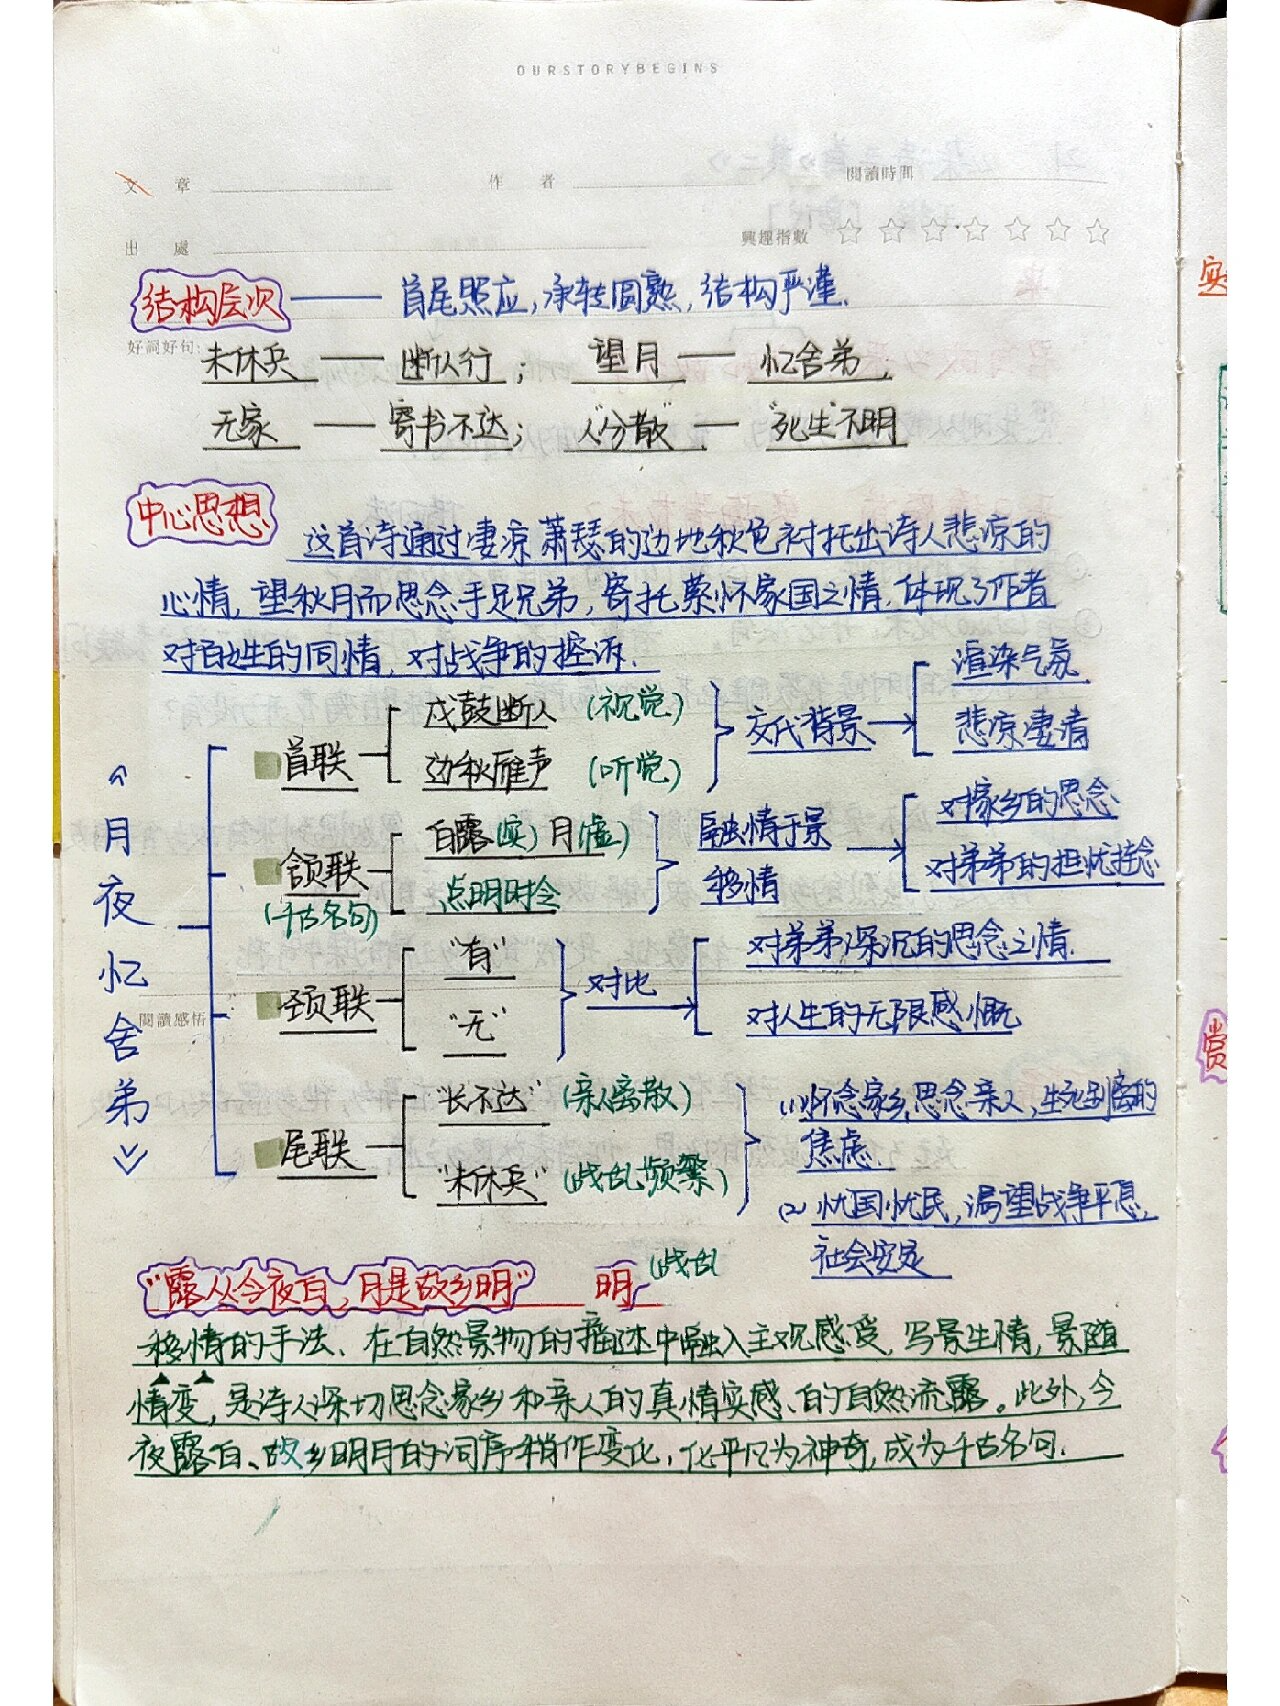 OURSTORYBEGINS
文 章 作 者 閱讀時間
出 處 興趣指數
结构层次 —— 首尾照应,承转圆熟,结构严谨.
好詞好句:
未休兵 —— 断人行; 望月 —— 忆舍弟.
无家 —— 寄书不达; 人"分散" —— "死生"不明
中心思想 这首诗通过凄凉萧瑟的边地秋色衬托出诗人悲凉的
心情,望秋月而思念手足兄弟,寄托萦怀家国之情,体现了作者
对百姓的同情,对战争的控诉.
《月夜忆舍弟》
首联 戍鼓断人 (视觉) 交代背景 渲染气氛
边秋雁声 (听觉) 悲凉凄清
颔联 白露(实) 月(虚) 融情于景 对家乡的思念
(千古名句) 点明时令 移情 对弟弟的担忧挂念
颈联 "有" 对比 对弟弟深沉的思念之情.
"无" 对人生的无限感慨
閱讀感悟
尾联 "长不达" (亲人离散) (1)怀念家乡,思念亲人,生死别离的
焦虑.
"未休兵" (战乱频繁) (2)忧国忧民,渴望战争平息,
社会安定
"露从今夜白,月是故乡明" 明 (战乱
移情的手法、在自然景物的描述中融入主观感受,写景生情,景随
情变,是诗人深切思念家乡和亲人的真情实感的自然流露。此外,今
夜露白、故乡明月的词序稍作变化,化平凡为神奇,成为千古名句.
实
赏